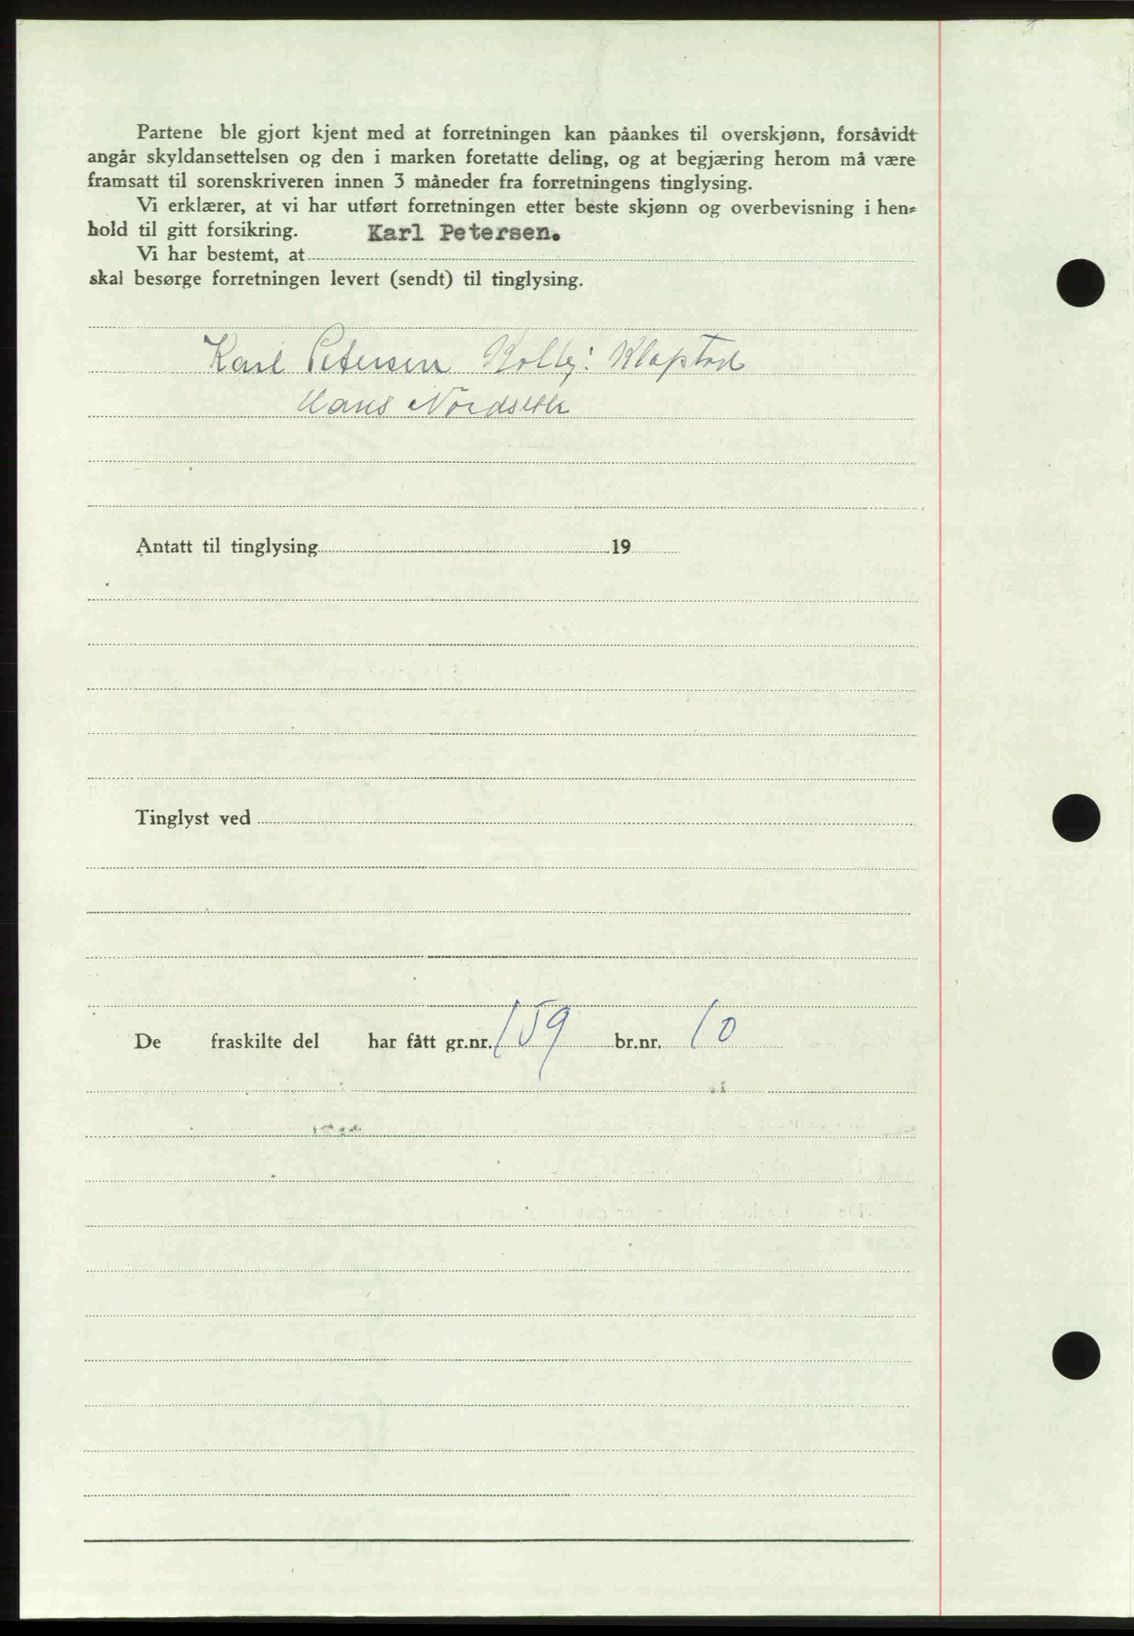 Partene ble gjort kjent med at forretningen kan påankes til overskjønn, forsåvidt
angår skyldansettelsen og den i marken foretatte deling, og at begjæring herom må være
framsatt til sorenskriveren innen 3 måneder fra forretningens tinglysing.
Vi erklærer, at vi har utført forretningen etter beste skjønn og overbevisning i hen=
hold til gitt forsikring.
Karl Petersen.
Vi har bestemt, at
skal besørge forretningen levert (sendt) til tinglysing.
Karl Petersen Kolbj: Klapstad
Hans Nordseth
Antatt til tinglysing 19
Tinglyst ved
De fraskilte del har fått gr.nr. 159 br.nr. 10